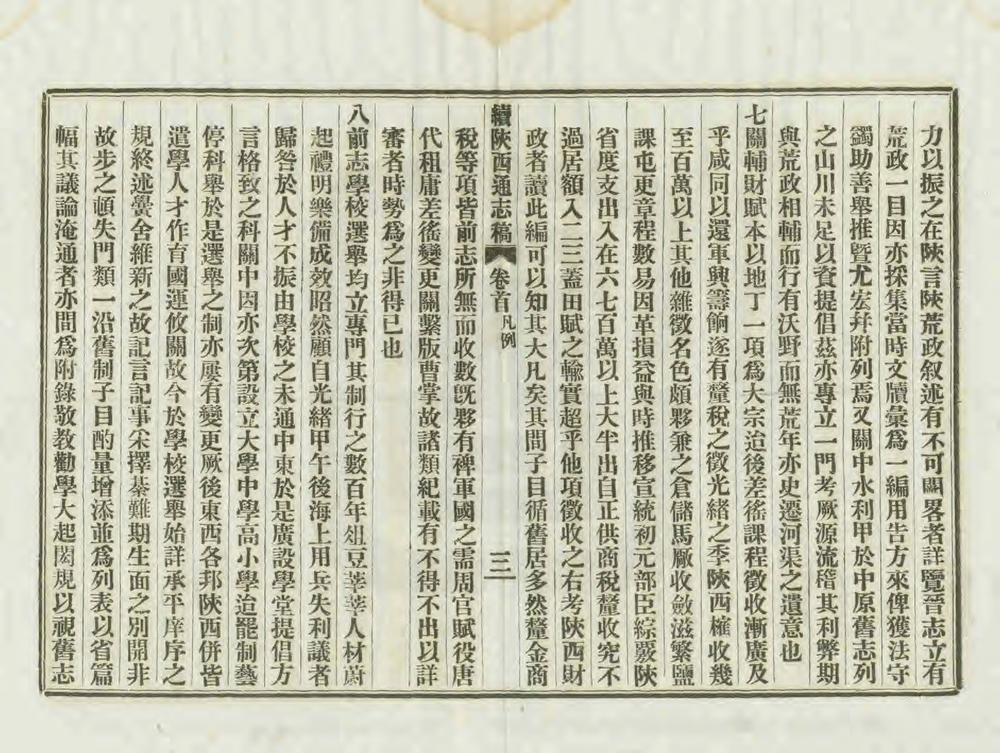 力以振之在陝言陝荒政叙述有不可闕畧者詳覽晉志立有
荒政一目因亦採集當時文牘彙爲一編用告方來俾獲法守
蠲助善舉推暨尤宏幷附列焉又關中水利甲於中原舊志列
之山川未足以資提倡茲亦專立一門考厥源流稽其利弊期
與荒政相輔而行有沃野而無荒年亦史遷河渠之遺意也
七關輔財賦本以地丁一項爲大宗迨後差徭課程徵收漸廣及
乎咸同以還軍興籌餉遂有釐稅之徵光緒之季陝西榷收幾
至百萬以上其他雜徵名色頗夥兼之倉儲馬厰收斂滋繁鹽
課屯更章程數易因革損益與時推移宣統初元部臣綜覈陝
省度支出入在六七百萬以上大半出自正供商稅釐收究不
過居額入二三蓋田賦之輸實超乎他項徵收之右考陝西財
政者讀此編可以知其大凡矣其間子目循舊居多然釐金商
續陝西通志稿 卷首 凡例 三
稅等項皆前志所無而收數旣夥有裨軍國之需周官賦役唐
代租庸差徭變更關繫版曹掌故諸類紀載有不得不出以詳
審者時勢爲之非得已也
八前志學校選舉均立專門其制行之數百年俎豆莘莘人材蔚
起禮明樂備成效昭然顧自光緒甲午後海上用兵失利議者
歸咎於人才不振由學校之未通中東於是廣設學堂提倡方
言格致之科關中因亦次第設立大學中學高小學迨罷制藝
停科舉於是選舉之制亦屢有變更厥後東西各邦陝西併皆
遣學人才作育國運攸關故今於學校選舉始詳承平庠序之
規終述黌舍維新之故記言記事宋擇綦難期生面之別開非
故步之頓失門類一沿舊制子目酌量增添並爲列表以省篇
幅其議論淹通者亦間爲附錄敬教勸學大起閎規以視舊志